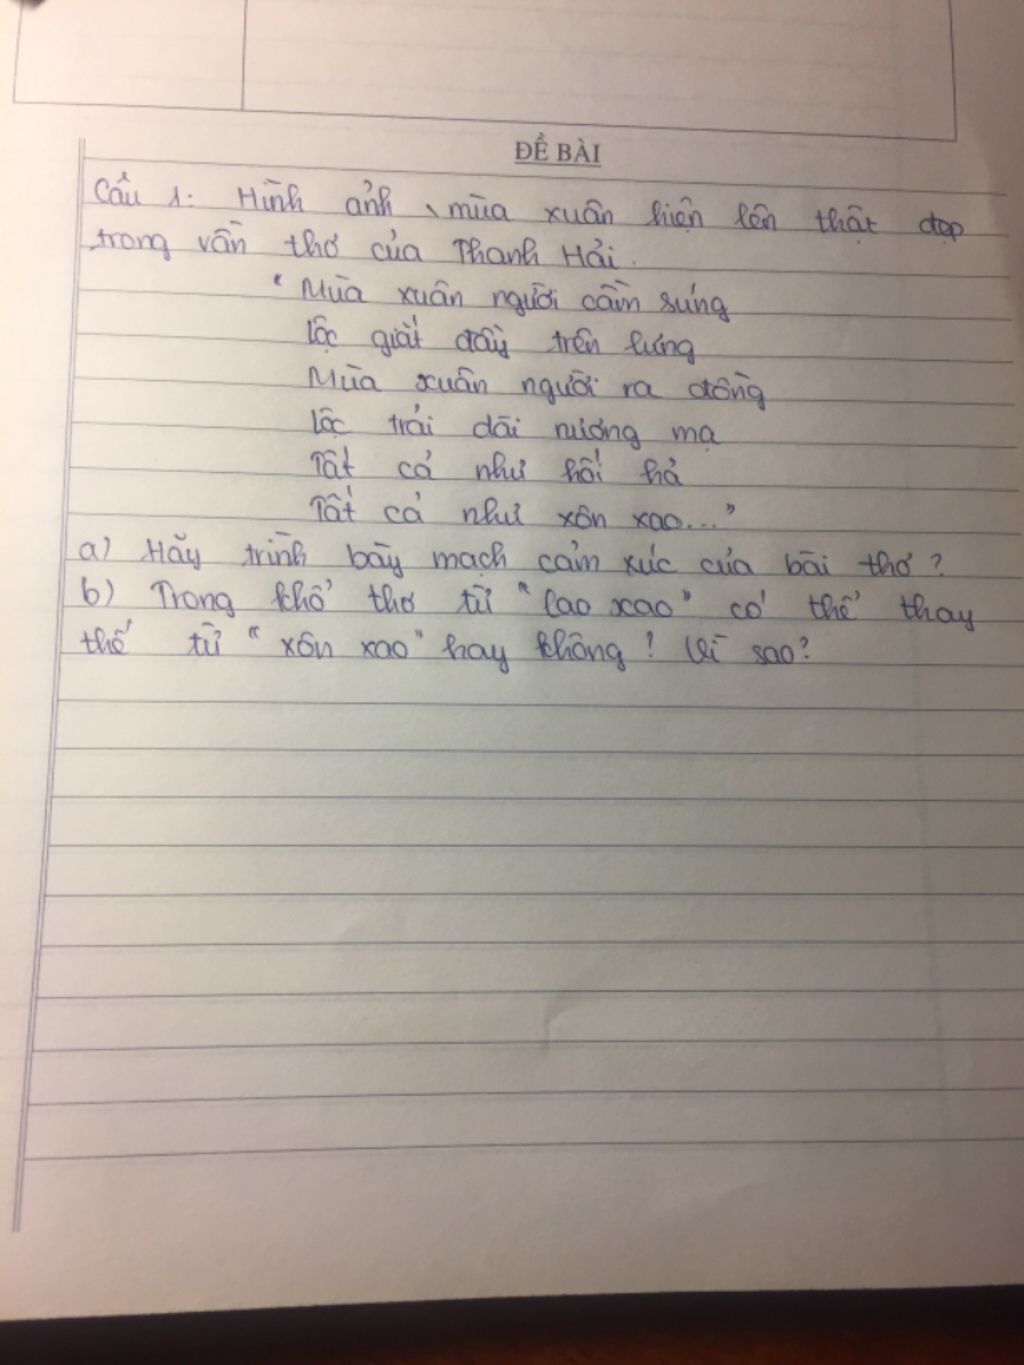 ĐỀ BÀI
Câu 1: Hình ảnh mùa xuân hiện lên thật đẹp
trong vần thơ của Thanh Hải.
"Mùa xuân người cầm súng
Lộc giắt đầy trên lưng
Mùa xuân người ra đồng
Lộc trải dài nương mạ
Tất cả như hối hả
Tất cả như xôn xao..."
a) Hãy trình bày mạch cảm xúc của bài thơ?
b) Trong khổ thơ từ "lao xao" có thể thay
thế từ "xôn xao" hay không! Vì sao?